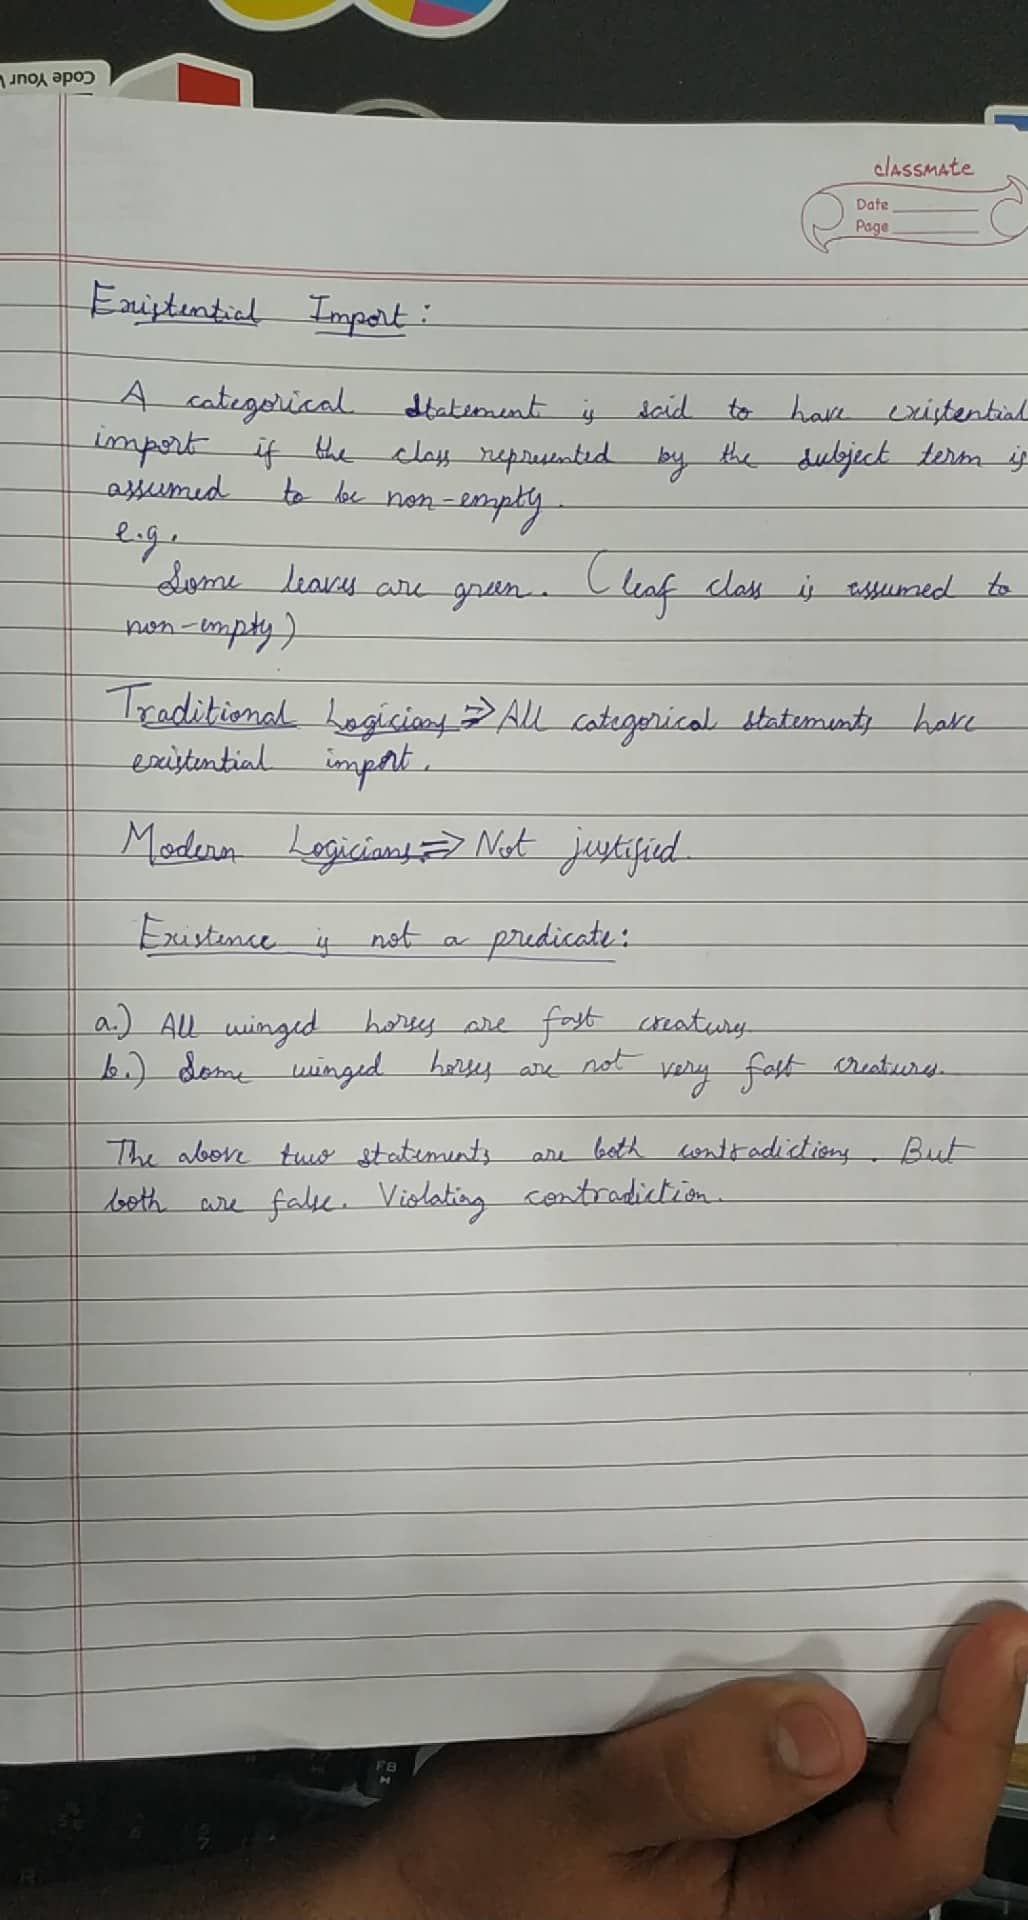 Code Your
classmate
Date
Page
Existential Import:
A categorical statement is said to have existential
import if the class represented by the subject term is
assumed to be non-empty.
e.g.
Some leaves are green. (leaf class is assumed to
non-empty)
Traditional Logicians ⇒ All categorical statements have
existential import.
Modern Logicians ⇒ Not justified.
Existence is not a predicate:
a.) All winged horses are fast creatures.
b.) Some winged horses are not very fast creatures.
The above two statements are both contradictions. But
both are false. Violating contradiction.
F8